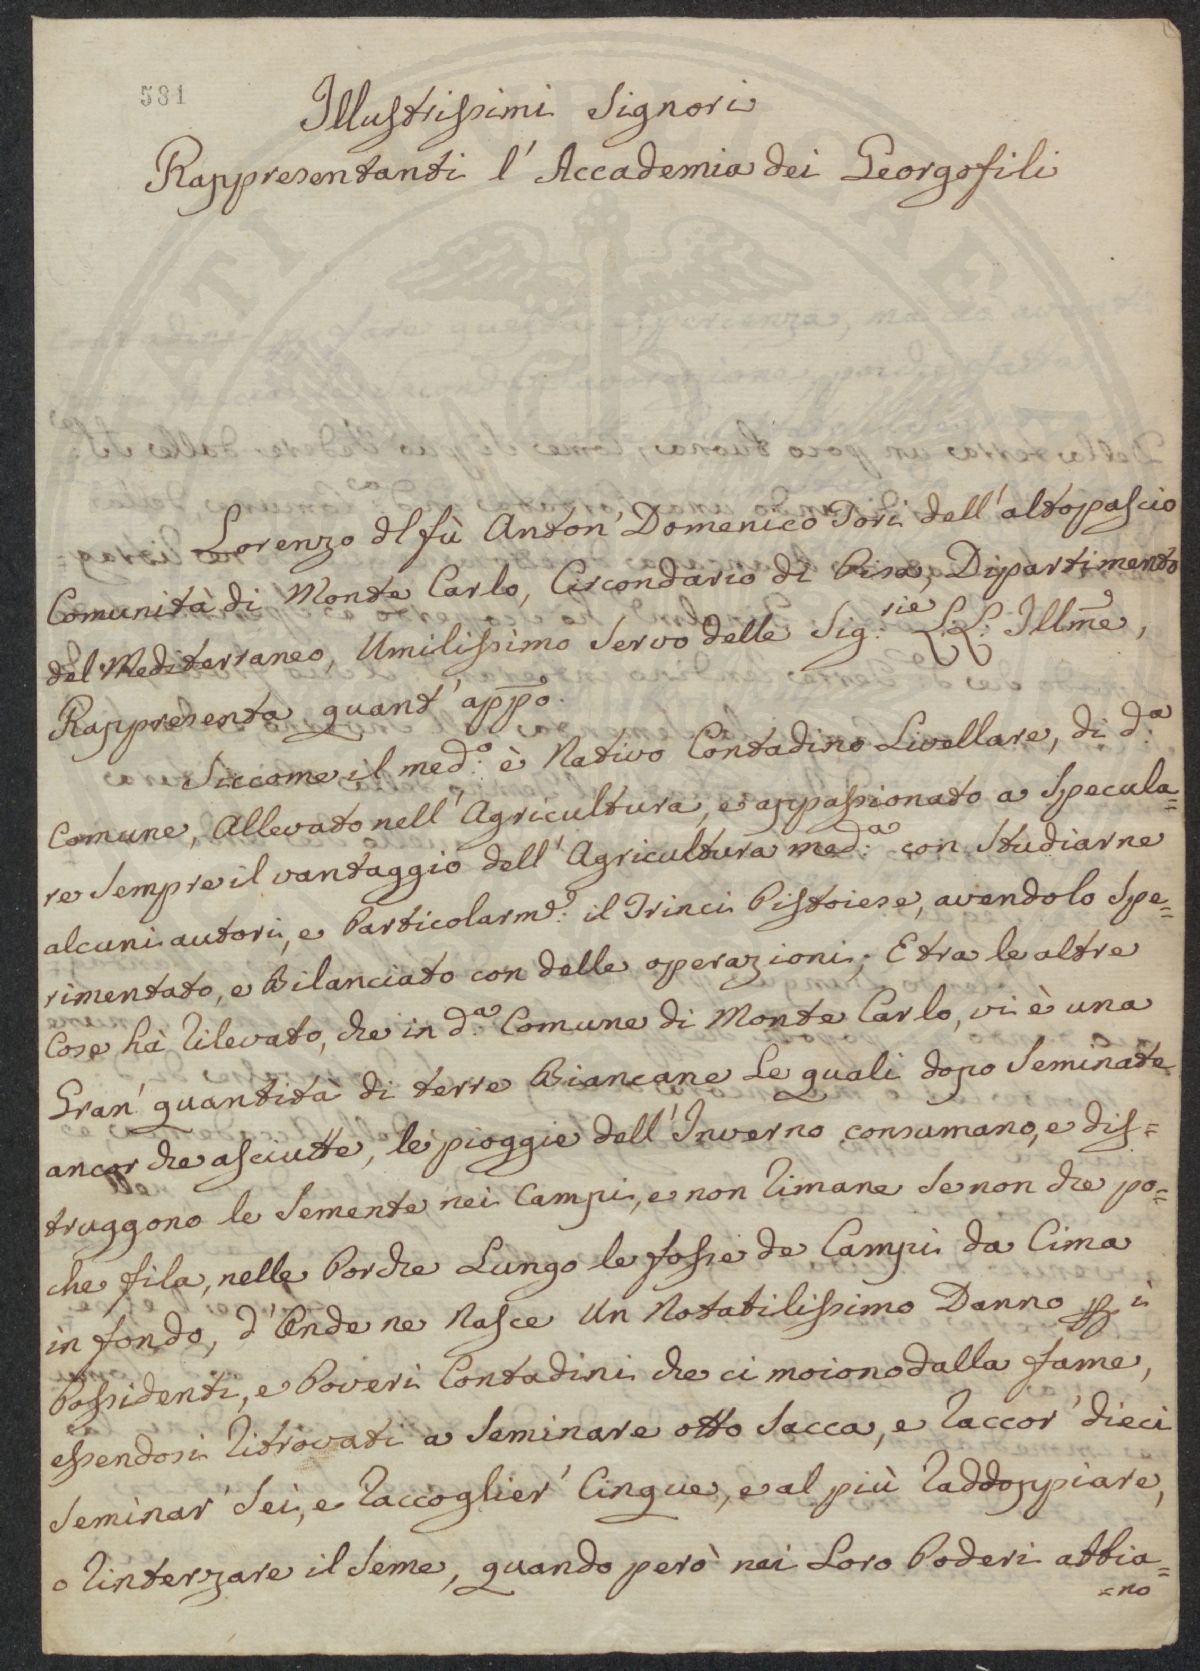 581
Illustrissimi Signori
Rappresentanti l' Accademia dei Georgofili
Lorenzo dl fù Anton' Domenico Tori dell'altopascio
Comunità di Monte Carlo, Circondario di Pisa, Dipartimento
del Mediterraneo, Umilissimo Servo delle Sig:rie L.L: Illme,
Rappresenta quant' appo:
Siccome il med:o è Nativo Contadino Livellare, di d:a
Comune, Allevato nell'Agricultura, e appassionato a Specula=
re Sempre il vantaggio dell'Agricultura med:a con Studiarne
alcuni autori, e Particolarmte: il Trinci Pistoiese, avendolo Spe=
rimentato, e Bilanciato con delle operazioni; E tra le altre
Cose hà rilevato, che in d:a Comune di Monte Carlo, vi è una
Gran' quantità di terre Biancane Le quali dopo Seminate
ancor che asciutte, le pioggie dell'Inverno consumano, e dis=
truggono le Semente nei Campi, e non rimane Se non che po=
che fila, nelle Porche Lungo le fosse de Campi da Cima
in fondo, d'Onde ne Nasce Un Notabilissimo Danno p i
Possidenti, e Poveri Contadini che ci moiono dalla fame,
essendosi ritrovati a Seminare otto Sacca, e raccor' dieci
Seminar' Sei, e raccoglier' Cinque, e al più raddoppiare,
o rinterzare il Seme, quando però nei Loro Poderi abbia=
=no